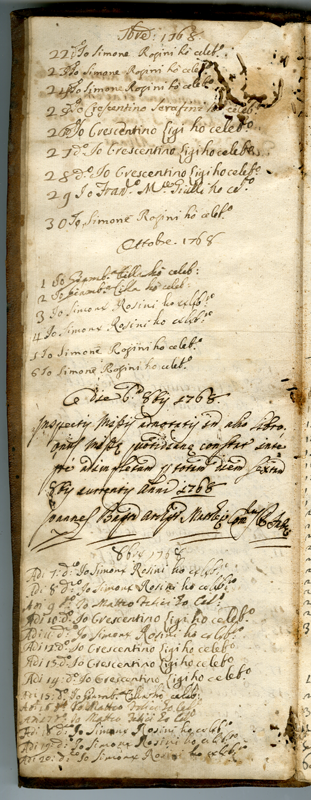 7bre 1768
22 d.o Io Simone Rosini hò celeb.o
23 Io Simone Rosini hò cele
24 Io Simone Rosini hò celeb
25 Io Crescentino Serafini hò celeb.o
26 Io Crescentino Ligi hò celeb.o
27 d.o Io Crescentino Ligi hò celeb.o
28 d.o Io Crescentino Ligi hò celeb.o
29 Io Fran.co M.a hò ce.o
30 Io Simone Rosini hò celeb.o
Ottobre 1768
1 Io Giamb.a Cella hò celeb:
2 Io Giamb.a Cella hò celeb:
3 Io Simone Rosini hò celeb.o
4 Io Simone Rosini hò celeb.o
5 Io Simone Rosini hò celeb.o
6 Io Simone Rosini hò celeb.o
Die 6 8bris 1768
Inspectis Missis adnotatis in hoc libro
quotidianas constat inte
gre adimpletam totum diem sextam
8bris currentis anni 1768
Joannes Bapta
8bre 1768
Adi 7 d.o Io Simone Rosini hò celeb.o
Adi 8 d.o Io Simone Rosini hò celeb.o
Adi 9 d.o Io Matteo Felici hò Cel:
Adi 10 d.o Io Crescentino Ligi hò celeb.o
Adi 11 d.o Io Simone Rosini hò celeb.o
Adi 12 d.o Io Crescentino Ligi hò celeb.o
Adi 13 d.o Io Crescentino Ligi hò celeb.o
Adi 14 d.o Io Crescentino Ligi hò celeb.o
Adi 15 d.o Io Giamb.a Cella hò celeb:
Adi 16 d.o Io Matteo Felici hò Cel:
Adi 17 d.o Io Matteo Felici hò Cel:
Adi 18 d.o Io Simone Rosini hò celeb.o
Adi 19 d.o Io Simone Rosini hò celeb.o
Adi 20 d.o Io Simone Rosini hò celeb.o